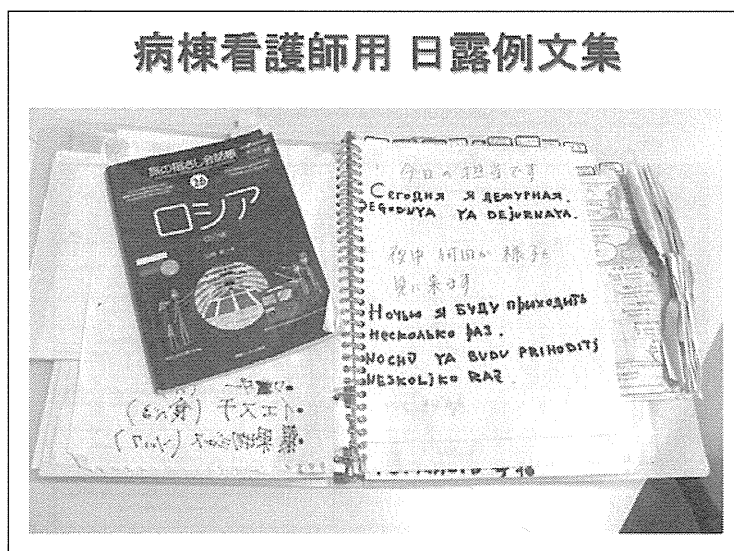 病棟看護師用 日露例文集
旅の指さし会話帳
28
ロシア
今日の担当です
Сегодня я дежурная.
SEGODNYA YA DEJURNAYA.
夜中 何回か 様子を
見に来ます
Ночью я буду приходить
несколько раз.
NOCHJ YA BUDU PRIHODITJ
NESKOLJKO RAZ.
イエスチ (食べる)